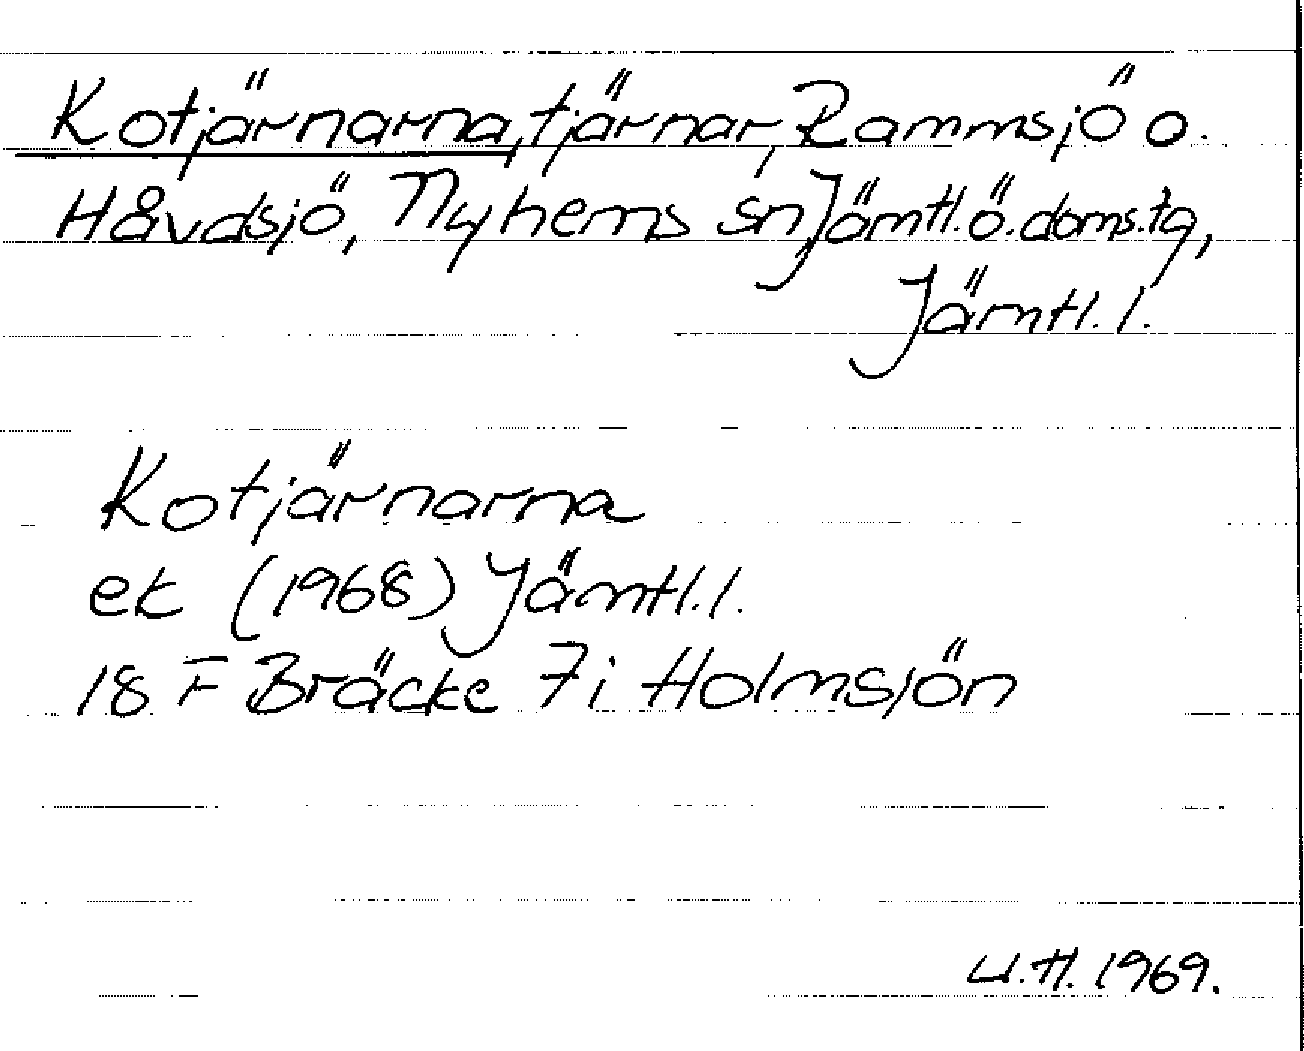 Kotjärnarna, tjärnar, Rammsjö o.
Håvdsjö, Nyhems sn, Jämtl.ö.doms.tg,
Jämtl. l.
Kotjärnarna
ek (1968) Jämtl. l.
18 F Bräcke 7i Holmsjön
U.H. 1969.